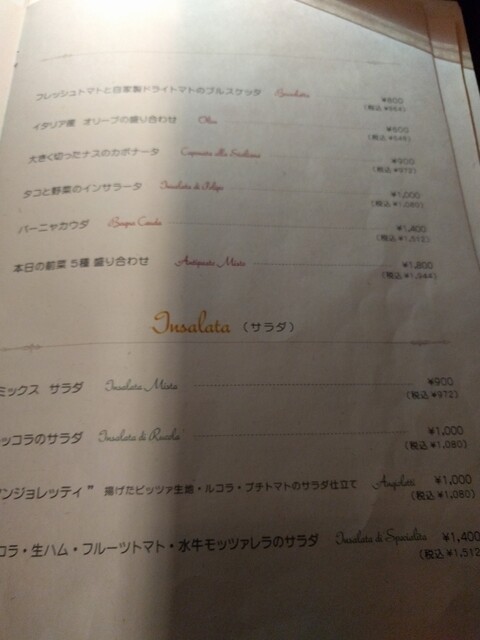 フレッシュトマトと自家製ドライトマトのブルスケッタ Bruschetta ¥800
(税込 ¥864)
イタリア産 オリーブの盛り合わせ Olive ¥600
(税込 ¥648)
大きく切ったナスのカポナータ Caponata alla Siciliana ¥900
(税込 ¥972)
タコと野菜のインサラータ Insalata di Polipo ¥1,000
(税込 ¥1,080)
バーニャカウダ Bagna Cauda ¥1,400
(税込 ¥1,512)
本日の前菜 5種 盛り合わせ Antipasto Misto ¥1,800
(税込 ¥1,944)
Insalata (サラダ)
ミックス サラダ Insalata Mista ¥900
(税込 ¥972)
ッコラのサラダ Insalata di Rucola ¥1,000
(税込 ¥1,080)
アンジョレッティ” 揚げたピッツァ生地・ルコラ・プチトマトのサラダ仕立て Angioletti ¥1,000
(税込 ¥1,080)
コラ・生ハム・フルーツトマト・水牛モッツァレラのサラダ Insalata di Specialita ¥1,400
(税込 ¥1,512